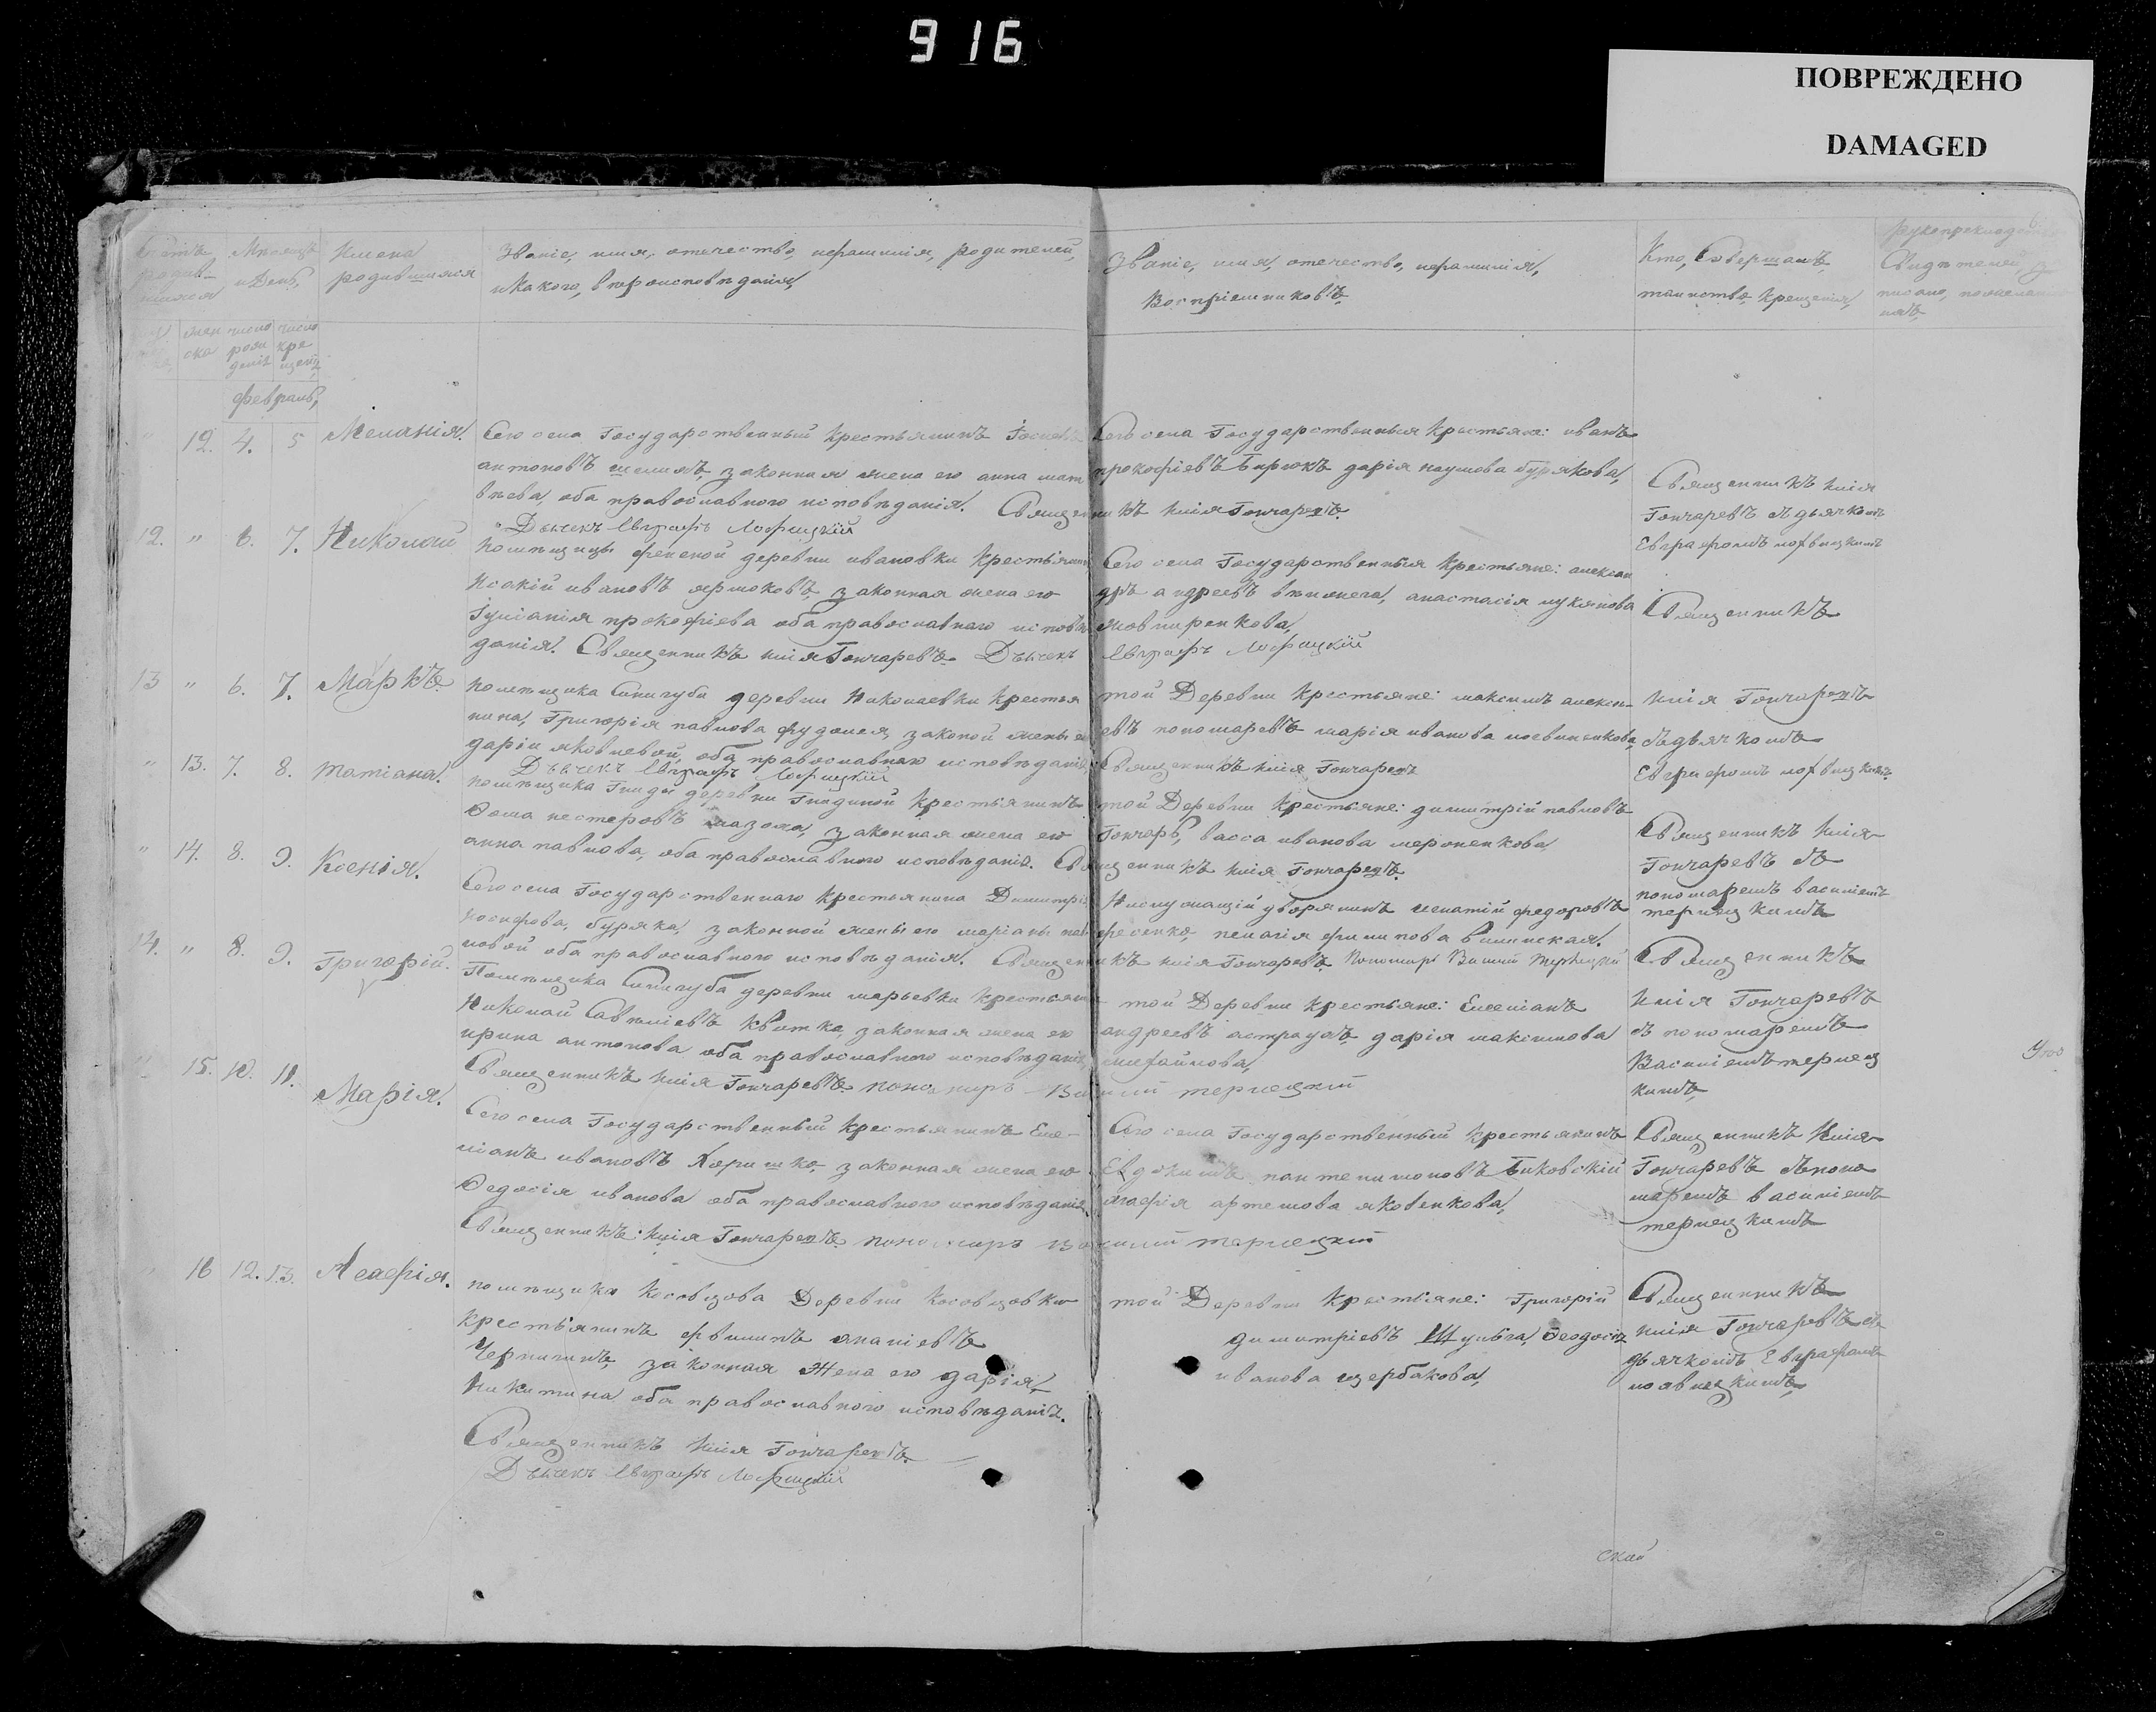 916
ПОВРЕЖДЕНО
DAMAGED
родив-
шихся
Мѣсяцъ
и День,
Имена
родившихся
Званіе, имя, отечество, и фамилія, родителей,
и какого, вѣроисповѣданія,
Званіе, имя, отечество, и фамилія,
Воспріемниковъ,
Кто, Совершалъ
таинство, крещенія,
рукоприкладство
Свидѣтелей
писано, по желанію
жен
ска
число
рож
денія
число
кре
щенія
февраль,
12. 4. 5 Меланія. Сего села Государственный Крестьянинъ Іосифъ
антоновъ шелихъ, законная жена его анна мат
вѣева оба православнаго исповѣданія. Священникъ илія Гончаревъ.
Дьячекъ Евграфъ Лофицкій
Сего села Государственныя Крестьяне: иванъ
прокофіевъ Бирюкъ дарія наумова бурякова,
Священникъ илія
Гончаревъ съ дьячкомъ
Евграфомъ лофвицкимъ
12. " 6. 7. Николай помѣщицы деревни ивановки крестьянинъ
Исакій ивановъ ярмоковъ, законная жена его
Іуліанія прокофіева оба православнаго исповѣ
данія. Священникъ илія Гончаревъ. Дьячекъ Евграфъ Лофицкій
Сего села Государственныя Крестьяне: алексан
дръ андреевъ анастасія лукянова
жовниренкова,
Священникъ
13 " 6. 7. Маркъ. помѣщика Синигуба деревни Николаевки крестья
нина, Григорія павлова законой жены его
даріи яковлевой, оба православнаго исповѣданія,
Дьячекъ Евграфъ Лофицкій
той Деревни крестьяне: максимъ алексѣ-
евъ пономаревъ марія иванова
Священникъ илія Гончаревъ
илія Гончаревъ
съ дьячкомъ
Евграфомъ лофвицкимъ
" 13. 7. 8. татіана. помѣщика Гнидъ деревни Гнидиной крестьянинъ
Ѳома нестеровъ мазома, законная жена его
анна павлова, оба православнаго исповѣданія. Священникъ илія Гончаревъ.
той Деревни крестьяне: димитрій павловъ
Гончаръ, васса иванова мероненкова
Священникъ илія
Гончаревъ съ
пономаремъ василіемъ
терлецкимъ
" 14. 8. 9. Ксенія. Сего села Государственнаго крестьянина Димитрія
іосифова, буряка, законной жены его маріаны пав
ловой оба православнаго исповѣданія. Священникъ илія Гончаревъ. Пономарь Василій Терлецкій
Неслужащій дворянинъ игнатій федоровъ
фесенко, пелагія филипова
Священникъ
14. " 8. 9. Григорій. Помѣщика Синигуба деревни марьевки крестьянинъ
Николай Савѣліевъ квитка, законная жена его
ирина антонова оба православнаго исповѣданія,
Священникъ илія Гончаревъ пономарь Василий терлецкий
той Деревни крестьяне: Емеліанъ
андреевъ дарія максимова
михайлова,
илія Гончаревъ
съ пономаремъ
Василіемъ терлец
кимъ,
15. 10. 11. Марія. Сего села Государственный крестьянинъ Еме-
ліанъ ивановъ Харишко законная жена его
Ѳедосія иванова оба православнаго исповѣданія,
Священникъ илія Гончаревъ. пономарь василий терлецкий
Сего села Государственный крестьянинъ
Евдокимъ пантелимоновъ Биковскій
агафія артемова яковенкова,
Священникъ илія
Гончаревъ съ поно
маремъ василіемъ
терлецкимъ
16 12. 13. Агафія. помѣщика Косовцова Деревни Косовцовки
крестьянинъ филипъ ананіевъ
Чернининъ, законная Жена его дарія,
Никитина оба православнаго исповѣданія.
Священникъ илія Гончаревъ.
Дьячекъ Евграфъ Лофицкій
той Деревни крестьяне: Григорій
димитріевъ Шульга, Ѳеодосія
иванова щербакова,
Священникъ
илія Гончаревъ съ
дьячкомъ Евграфомъ
ской